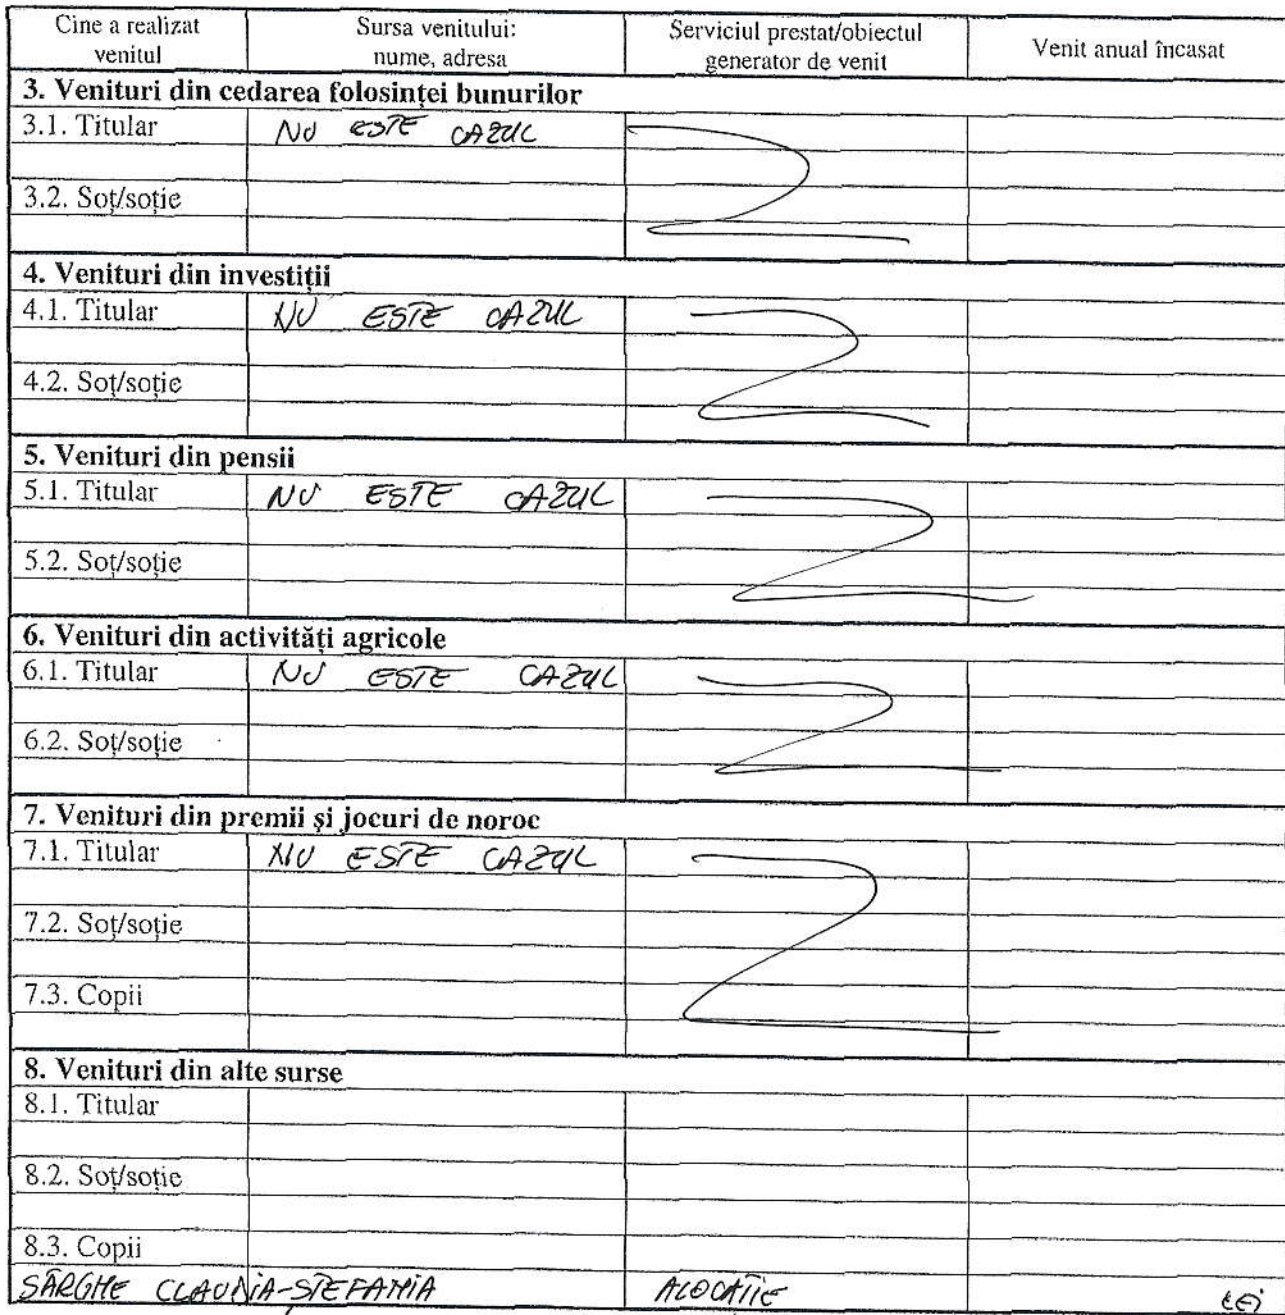 Cine a realizat venitul | Sursa venitului: nume, adresa | Serviciul prestat/obiectul generator de venit | Venit anual încasat
3. Venituri din cedarea folosinței bunurilor
3.1. Titular NU ESTE CAZUL
3.2. Soț/soție
4. Venituri din investiții
4.1. Titular NU ESTE CAZUL
4.2. Soț/soție
5. Venituri din pensii
5.1. Titular NU ESTE CAZUL
5.2. Soț/soție
6. Venituri din activități agricole
6.1. Titular NU ESTE CAZUL
6.2. Soț/soție
7. Venituri din premii și jocuri de noroc
7.1. Titular NU ESTE CAZUL
7.2. Soț/soție
7.3. Copii
8. Venituri din alte surse
8.1. Titular
8.2. Soț/soție
8.3. Copii
SÂRGHE CLAUDIA-ȘTEFANIA ALOCATIE LEI